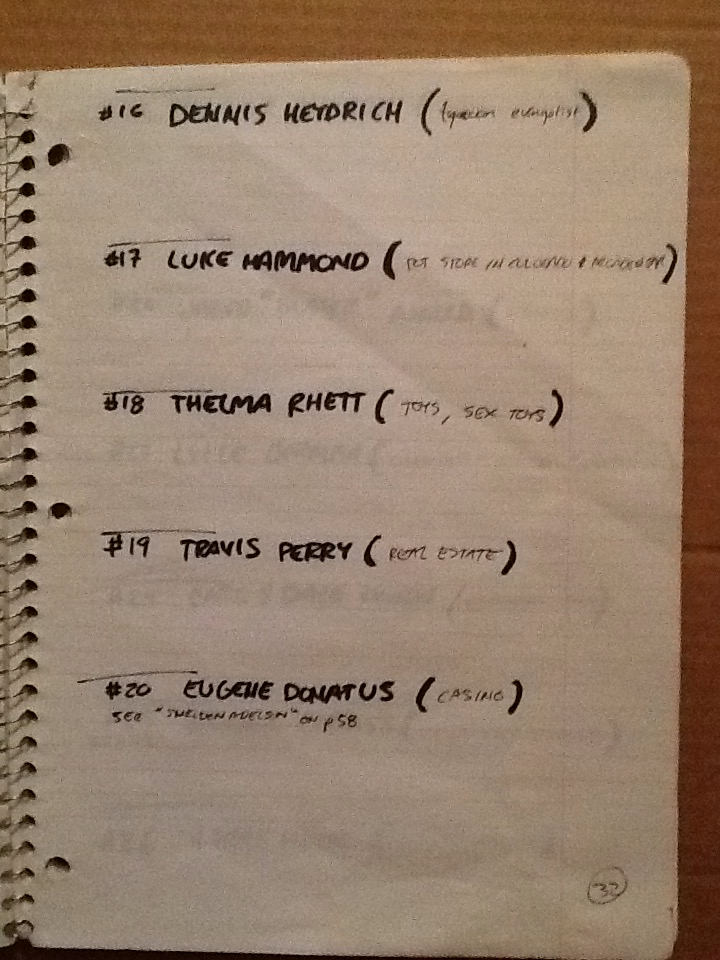 #16 DENNIS HEYDRICH ( )
#17 LUKE HAMMOND (PET STORE IN &)
#18 THELMA RHETT (TOYS, SEX TOYS)
#19 TRAVIS PERRY (REAL ESTATE)
#20 EUGENE DONATUS (CASINO)
SEE "SHELDON ADELSON" ON p58
32